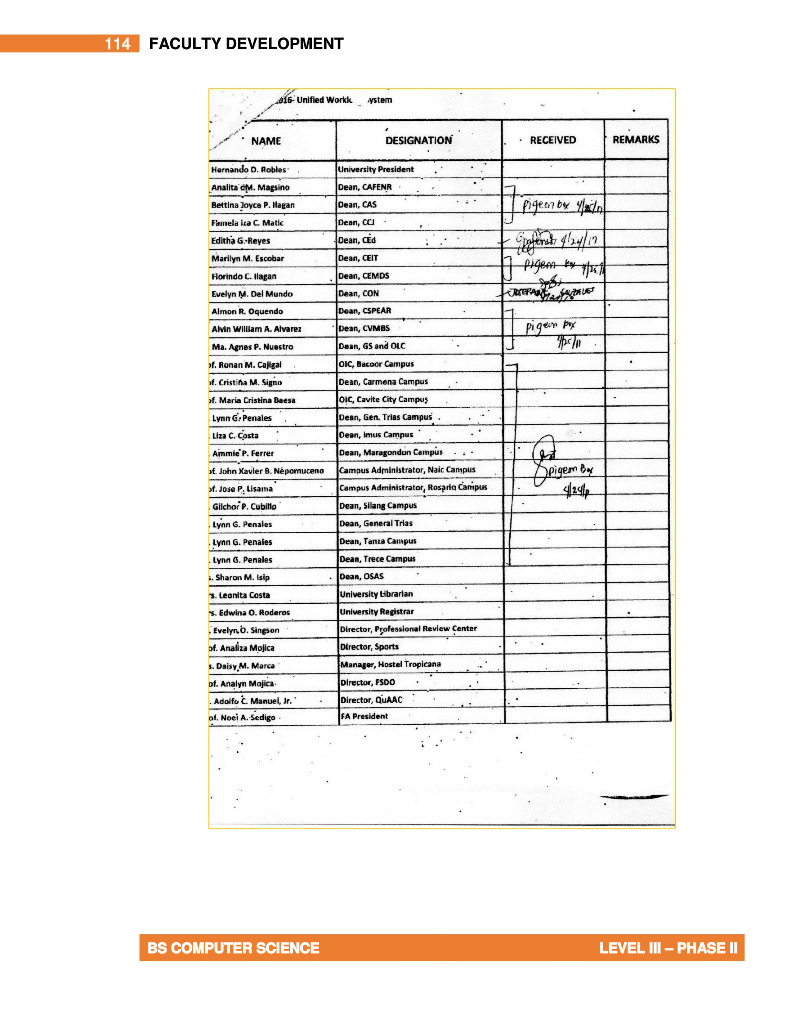 114 FACULTY DEVELOPMENT
016- Unified Workl ystem
NAME DESIGNATION RECEIVED REMARKS
Hernando D. Robles University President
Analita dM. Magsino Dean, CAFENR
Bettina Joyce P. Ilagan Dean, CAS pigeon box
Famela Iza C. Matic Dean, CCJ
Editha G. Reyes Dean, CEd 4/24/17
Marilyn M. Escobar Dean, CEIT pigeon box
Florindo C. Ilagan Dean, CEMDS
Evelyn M. Del Mundo Dean, CON
Almon R. Oquendo Dean, CSPEAR
Alvin William A. Alvarez Dean, CVMBS pigeon box
Ma. Agnes P. Nuestro Dean, GS and OLC
of. Ronan M. Cajigal OIC, Bacoor Campus
of. Cristina M. Signo Dean, Carmona Campus
of. Maria Cristina Baesa OIC, Cavite City Campus
. Lynn G. Penales Dean, Gen. Trias Campus
. Liza C. Costa Dean, Imus Campus
. Ammie P. Ferrer Dean, Maragondon Campus
of. John Xavier B. Nepomuceno Campus Administrator, Naic Campus pigeon Box
of. Jose P. Lisama Campus Administrator, Rosario Campus
. Gilchor P. Cubillo Dean, Silang Campus
. Lynn G. Penales Dean, General Trias
. Lynn G. Penales Dean, Tanza Campus
. Lynn G. Penales Dean, Trece Campus
s. Sharon M. Isip Dean, OSAS
rs. Leonita Costa University Librarian
rs. Edwina O. Roderos University Registrar
. Evelyn O. Singson Director, Professional Review Center
of. Analiza Mojica Director, Sports
s. Daisy M. Marca Manager, Hostel Tropicana
of. Analyn Mojica Director, FSDO
. Adolfo C. Manuel, Jr. Director, QuAAC
of. Noel A. Sedigo FA President
BS COMPUTER SCIENCE LEVEL III – PHASE II